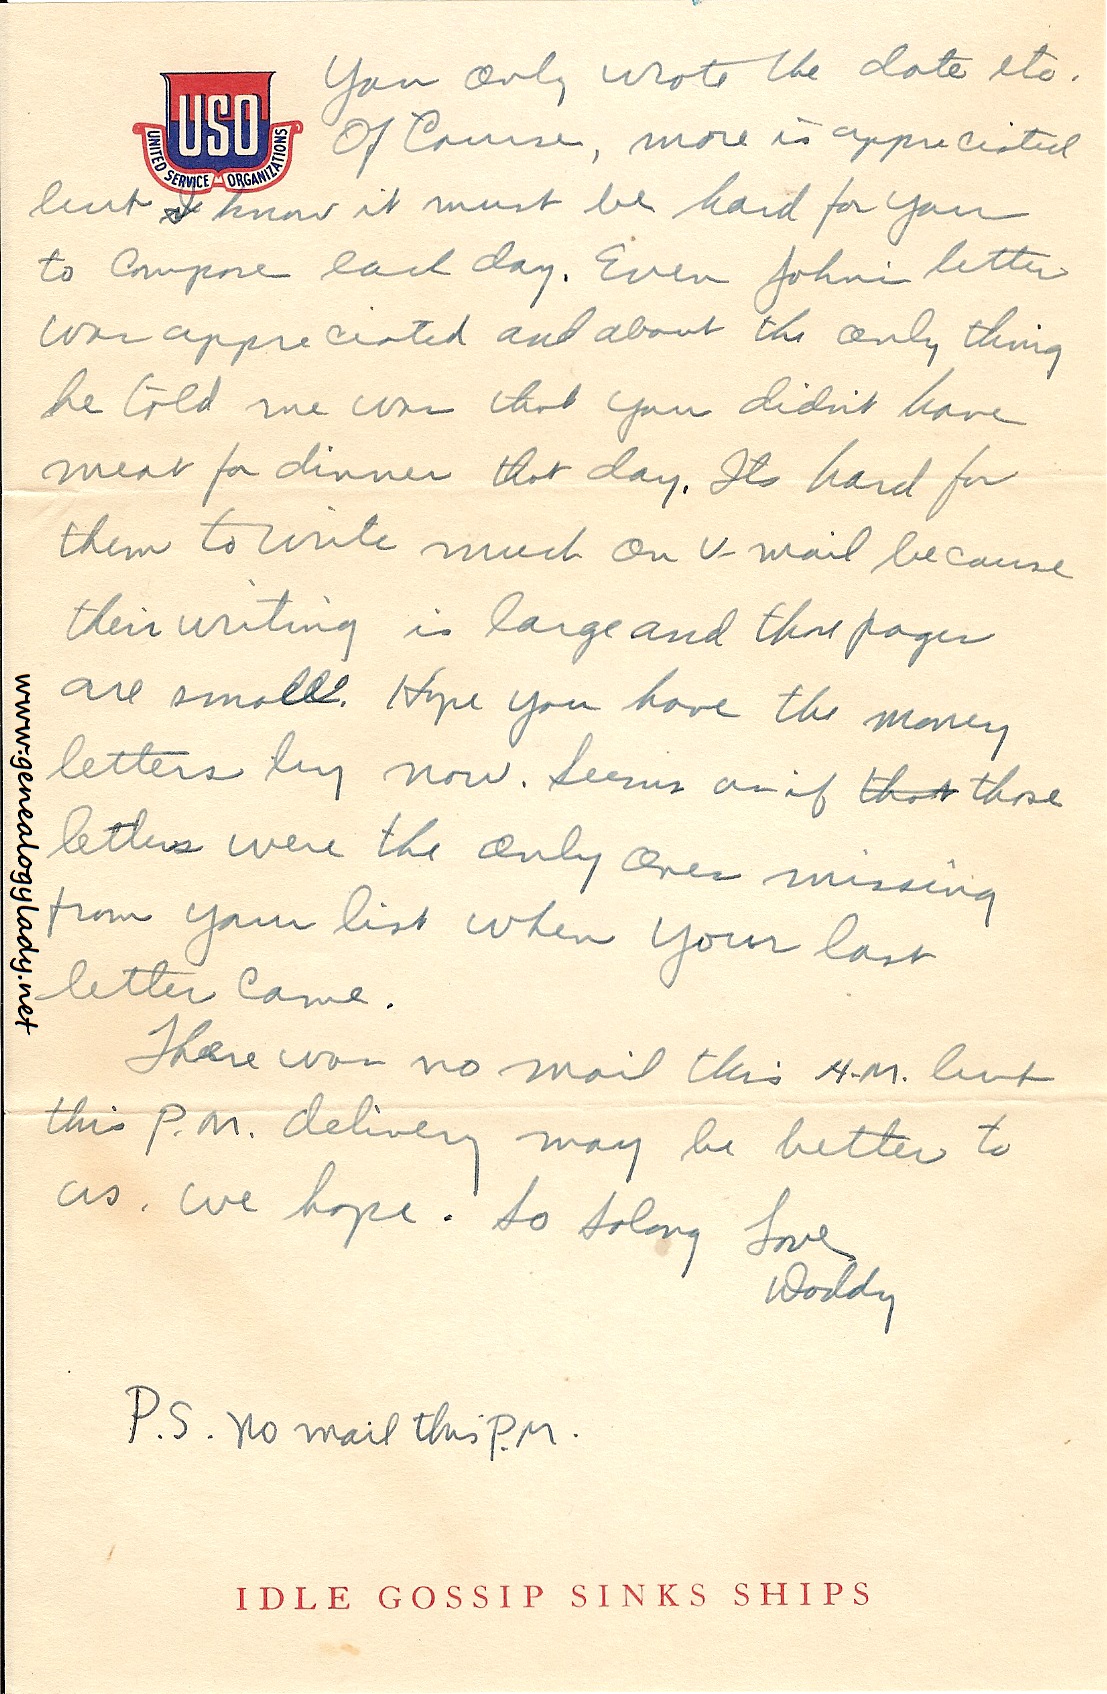 USO
UNITED SERVICE ORGANIZATIONS
You only wrote the date etc.
Of Course, more is appreciated
but I know it must be hard for you
to compose each day. Even Johns letter
was appreciated and about the only thing
he told me was that you didn't have
meat for dinner that day. Its hard for
them to write much on V-mail because
their writing is large and those pages
are small. Hope you have the money
letters by now. Seems as if that those
letters were the only ones missing
from your list when your last
letter came.
There was no mail this A.M. but
this P.M. delivery may be better to
us. we hope. So Solong Love
Daddy
P.S. No mail this P.M.
IDLE GOSSIP SINKS SHIPS
www.genealogylady.net